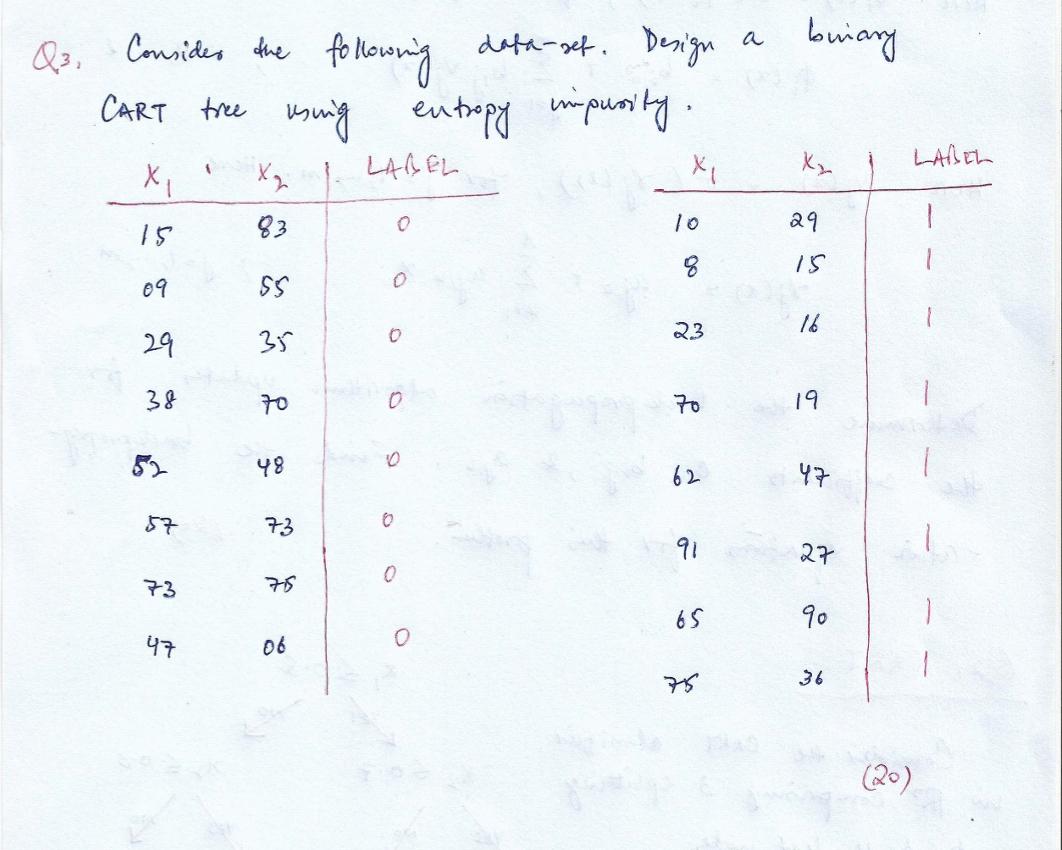 Q3. Consider the following data-set. Design a binary
CART tree using entropy impurity.
X1 X2 LABEL
15 83 0
09 55 0
29 35 0
38 70 0
52 48 0
57 73 0
73 75 0
47 06 0
X1 X2 LABEL
10 29 1
8 15 1
23 16 1
70 19 1
62 47 1
91 27 1
65 90 1
75 36 1
(20)